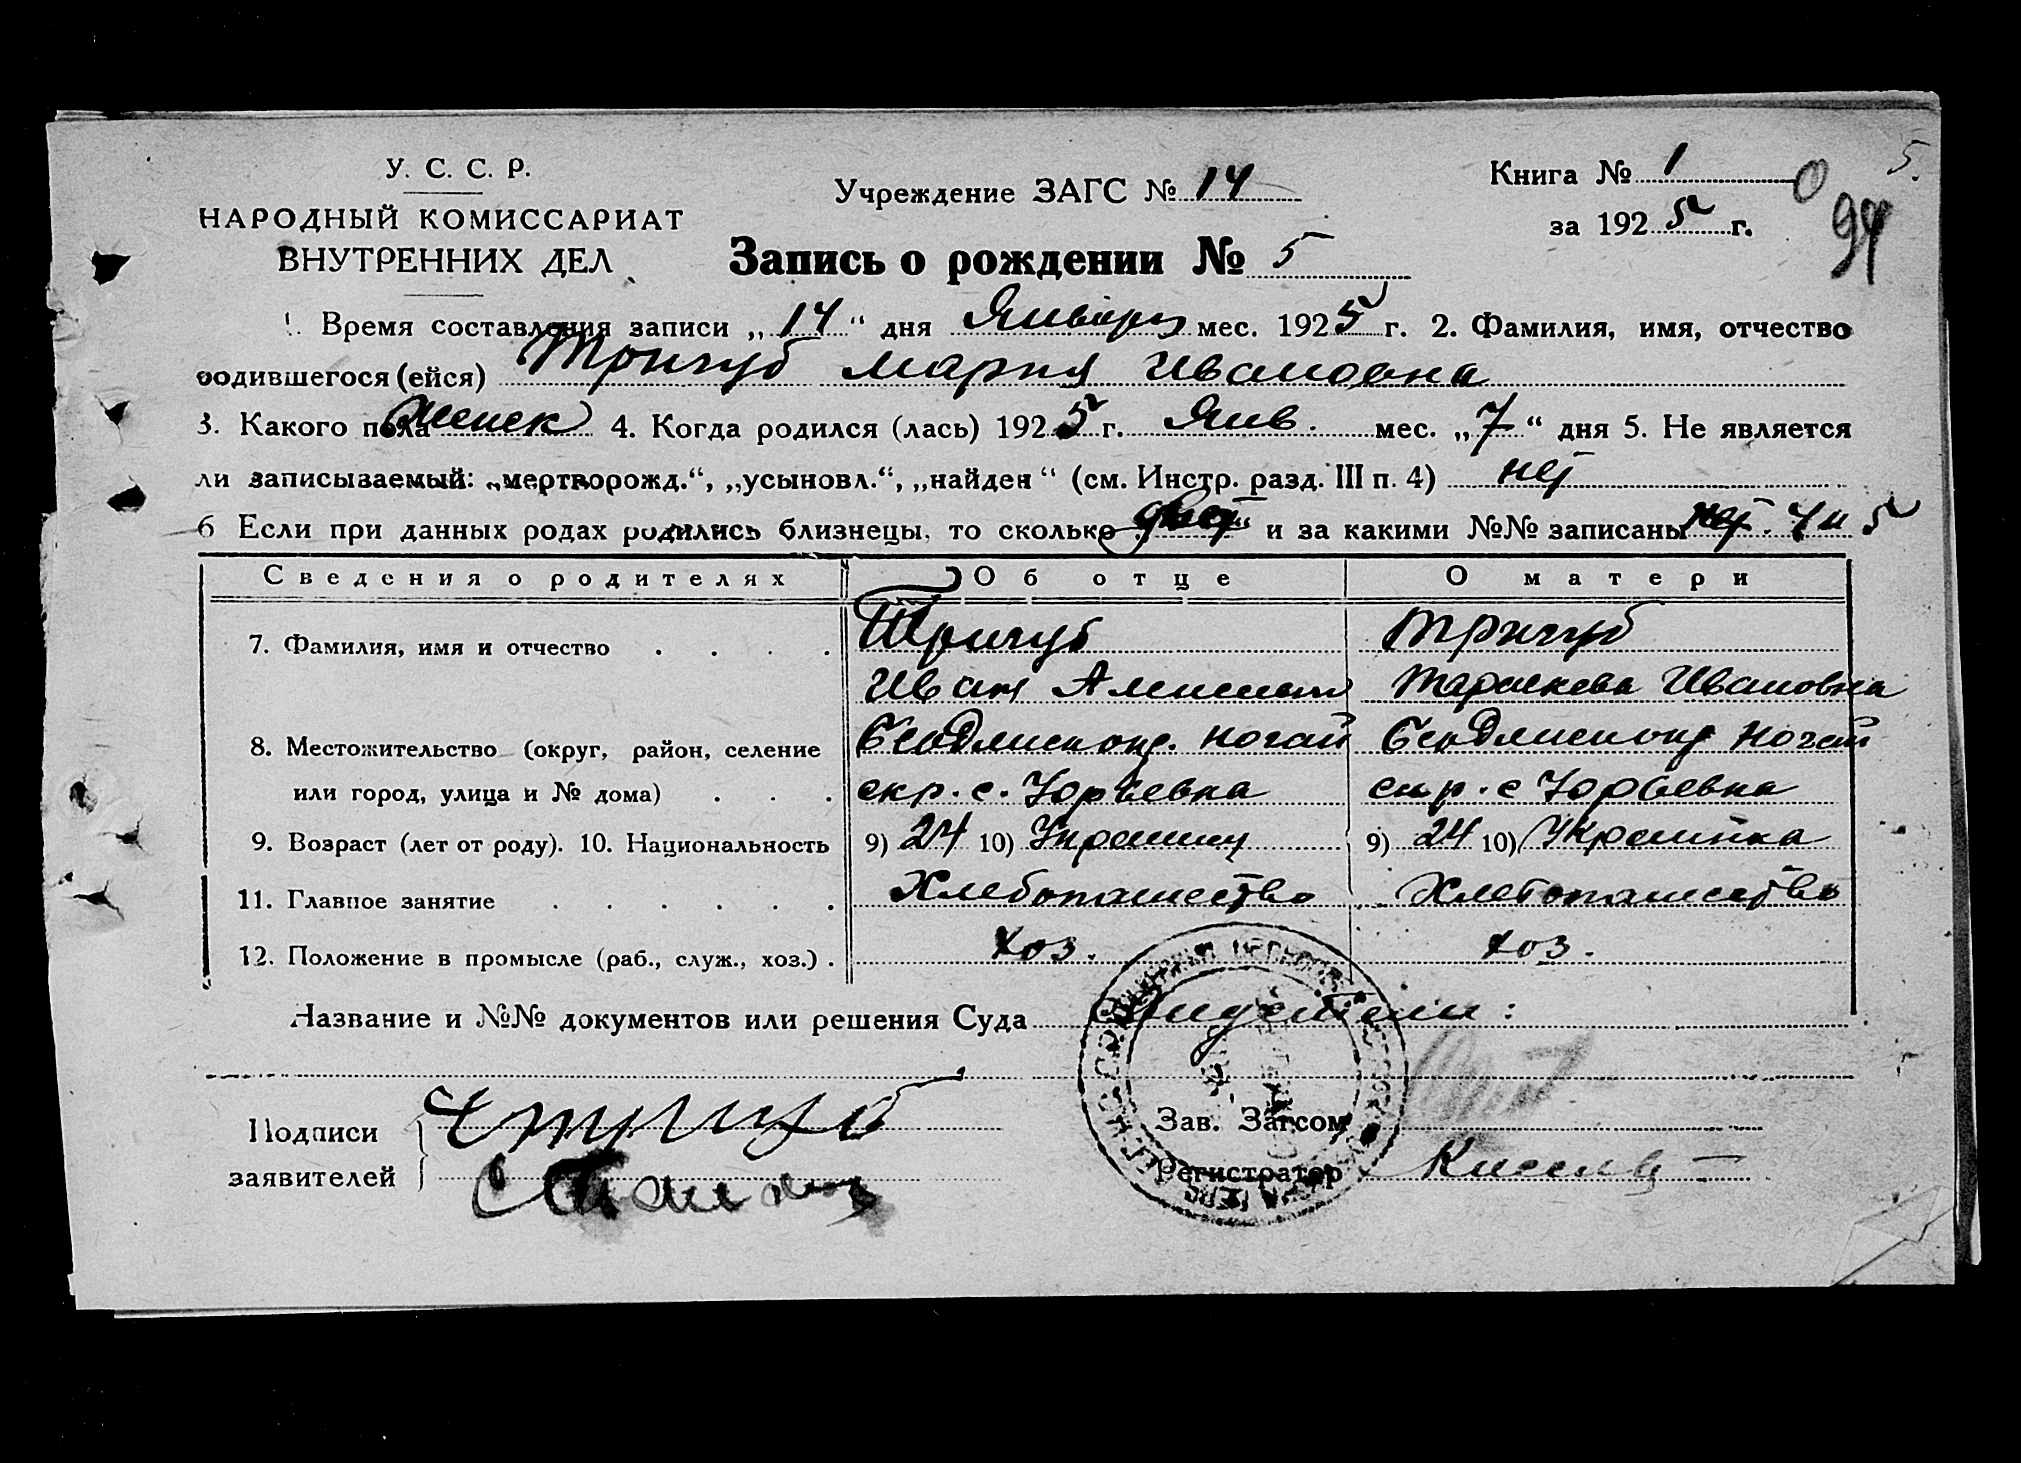 У. С. С. Р.
НАРОДНЫЙ КОМИССАРИАТ
ВНУТРЕННИХ ДЕЛ
Учреждение ЗАГС № 14
Книга № 1
5.
за 1925 г.
94
Запись о рождении № 5
1. Время составления записи „14“ дня Января мес. 1925 г. 2. Фамилия, имя, отчество
родившегося (ейся) Тричуб Мария Ивановна
3. Какого пола женск 4. Когда родился (лась) 1925 г. Янв. мес. „7“ дня 5. Не является
ли записываемый: „мертворожд.“, „усыновл.“, „найден“ (см. Инстр. разд. III п. 4) нет
6 Если при данных родах родились близнецы, то сколько и за какими №№ записаны нет. 4 и 5
Сведения о родителях Об отце О матери
7. Фамилия, имя и отчество Тричуб Тричуб
Иван Ивановна
8. Местожительство (округ, район, селение Ногай Ногай
или город, улица и № дома) скр. с. Юрьевка скр. с Юрьевка
9. Возраст (лет от роду). 10. Национальность 9) 24 10) Украинец 9) 24 10) Украинка
11. Главное занятие Хлебопашество Хлебопашество
12. Положение в промысле (раб., служ., хоз.) хоз. хоз.
Название и №№ документов или решения Суда Свидетели:
Подписи
заявителей
Зав. Загсом
Регистратор